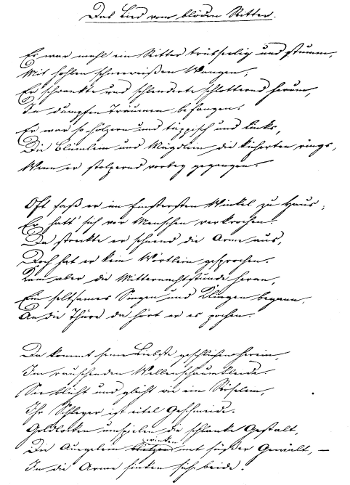 Das Lied vom blöden Ritter.
Es war mahl ein Ritter trübseelig und stumm,
Mit hohlen schneeweißen Wangen,
Er schwankte und schlenderte schlotternd herum,
In dumpfen Träumen befangen.
Er war so hölzern und täppisch und links,
Die Blümlein und Mägdlein die kicherten rings,
Wenn er stolpernd vorbey gegangen.
Oft saß er im finstersten Winkel zu Haus;
Er hatt' sich vor Menschen verkrochen.
Da streckte er sehnend die Arme aus,
Doch hat er kein Wörtlein gesprochen.
Kam aber die Mitternachtstunde heran,
Ein seltsames Singen und Klingen begann,
An die Thüre da hört er es pochen.
Da kommt seine Liebste geschlichen herein,
Im rauschenden Wellenschaumkleide.
Sie blüht und glüht wie ein Röselein,
Ihr Schleyer ist eitel Geschmeide.
Goldlocken umspielen die schlanke Gestalt,
Die Aeuglein winken mit süßer Gewalt, —
In die Arme sinken sich beide.